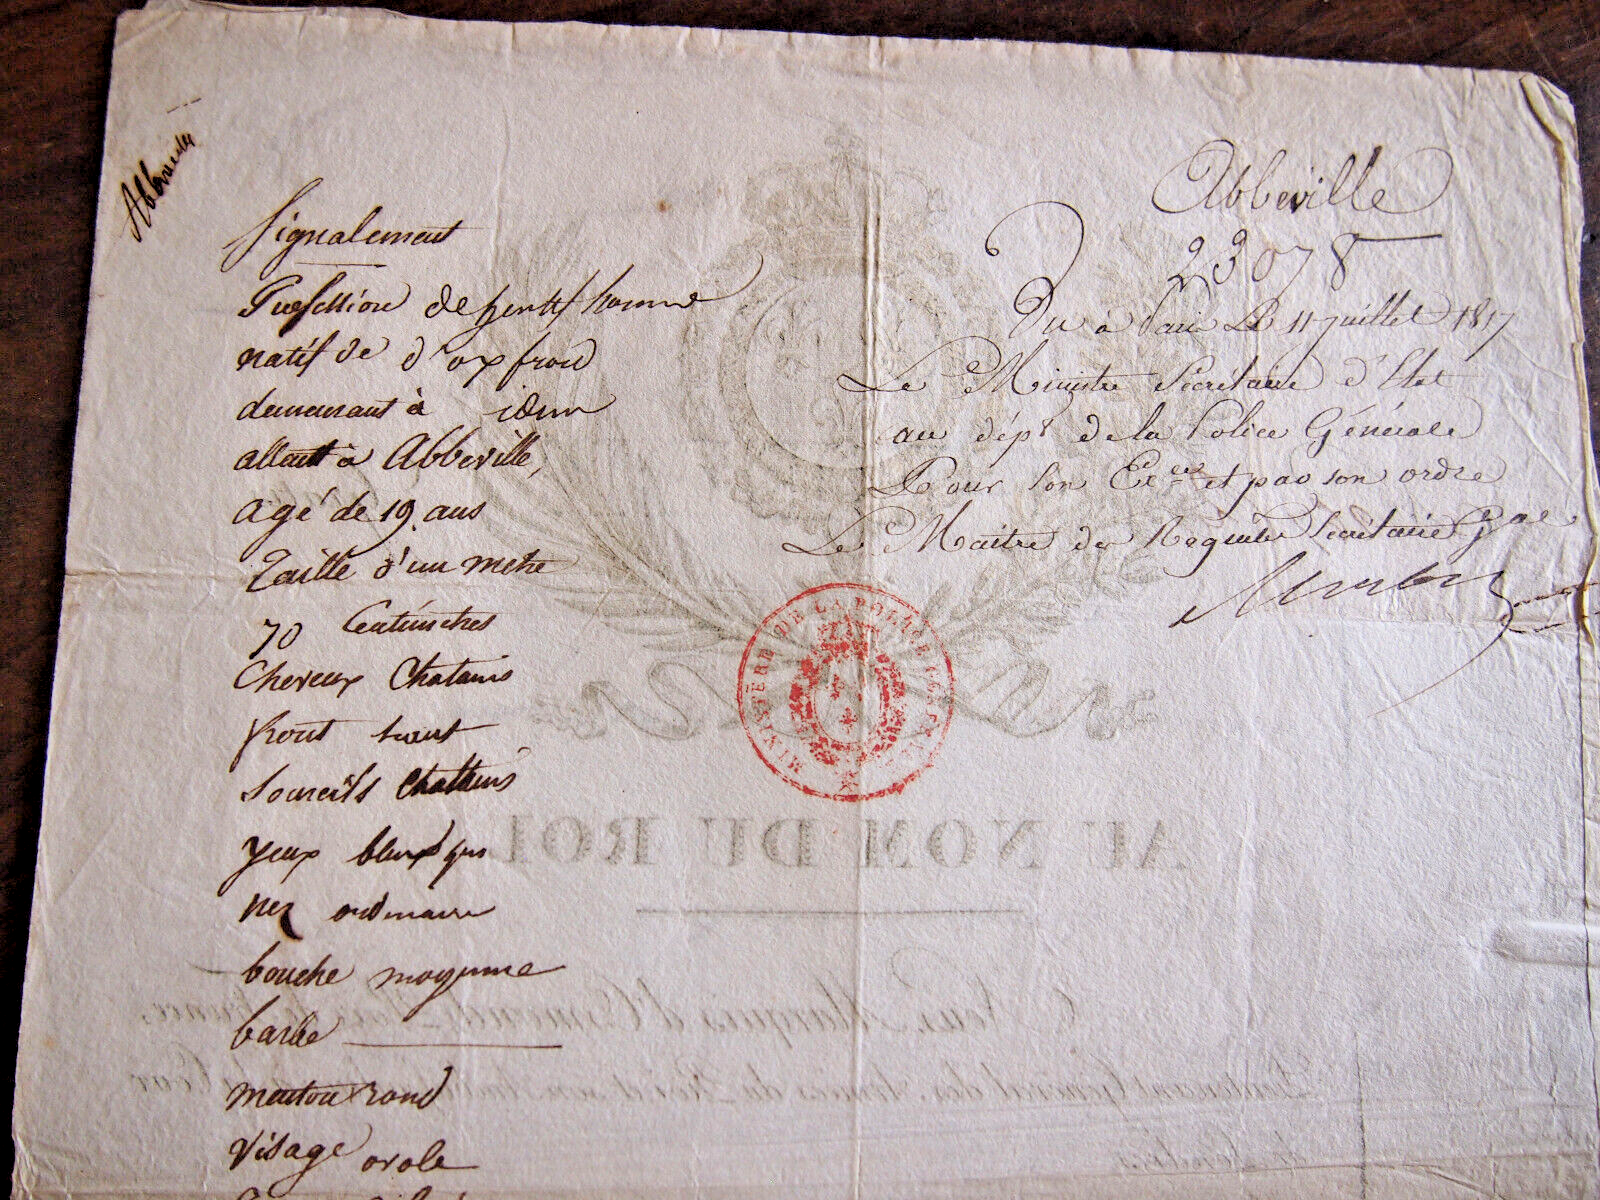 Abbeville
Signalement
Profession de gentilhomme
natif de d'oxfroid
demeurant à idem
allant à Abbeville,
agé de 19 ans
Taille d'un metre
70 Centimetres
Cheveux Chatains
front haut
Sourcils Chattins
yeux bleux gris
nez ordinaire
bouche moyenne
barbe
menton rond
visage ovale
Abbeville
23078
Vu à Paris Le 11 juillet 1817
Le Ministre Secrétaire d'Etat
au dépt de la Police Générale
Pour Son Exce et par son ordre
Le Maitre des Requêtes Secrétaire Gal
MINISTÈRE DE LA POLICE GÉNÉRALE
AU NOM DU ROI
Nous, Marquis d'Osmond, Pair de France,
Lieutenant Général des Armées du Roi et son
de Londres